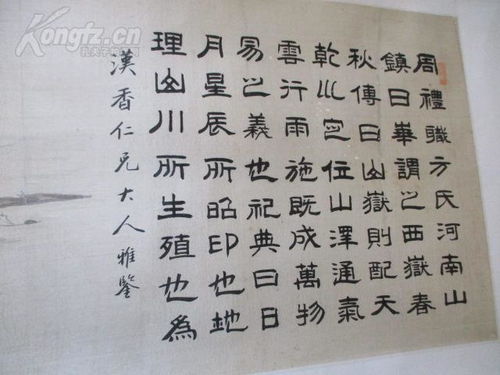 周禮職方氏河南山
鎮曰華謂之西嶽春
秋傳曰山嶽則配天
乾巛定位山澤通氣
雲行雨施既成萬物
易之義也祀典曰日
月星辰所昭卬也地
理山川所生殖也為
漢香仁兄大人雅鑒
Kongfz.com